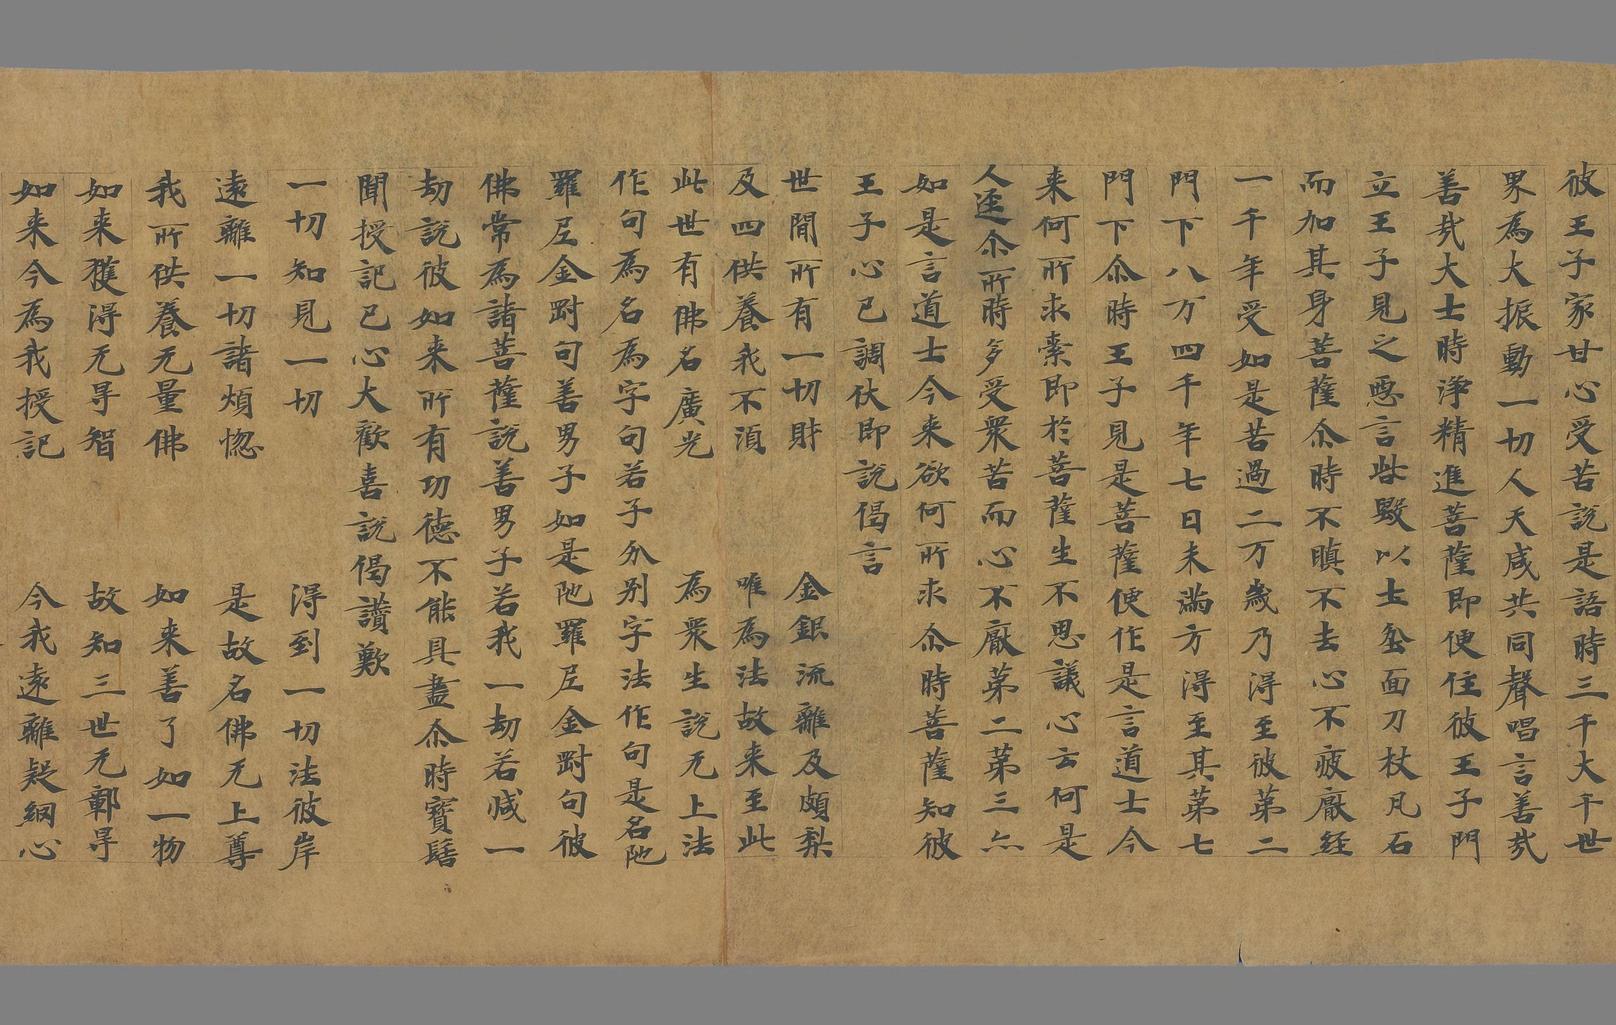 彼王子家甘心受苦說是語時三千大千世
界為大振動一切人天咸共同聲唱言善哉
善哉大士時淨精進菩薩即便住彼王子門
立王子見之惡言呰毀以土坌面刀杖凡石
而加其身菩薩尒時不瞋不去心不疲厭經
一千年受如是苦過二万歲乃得至彼第二
門下八万四千年七日未滿方得至其第七
門下尒時王子見是菩薩便作是言道士今
来何所求索即於菩薩生不思議心云何是
人逕尒所時多受衆苦而心不厭第二第三亦
如是言道士今来欲何所求尒時菩薩知彼
王子心已調伏即說偈言
世間所有一切財　金銀流離及頗梨
及四供養我不須　唯為法故来至此
此世有佛名廣光　為衆生說无上法
作句為名為字句若子分別字法作句是名陁
羅尼金剛句善男子如是陁羅尼金剛句彼
佛常為諸菩薩說善男子若我一劫若减一
劫說彼如来所有功德不能具盡尒時寶髻
聞授記已心大歡喜說偈讚歎
一切知見一切　得到一切法彼岸
遠離一切諸煩惚　是故名佛无上尊
我所供養无量佛　如来善了如一物
如来獲得无㝵智　故知三世无鄣㝵
如来今為我授記　今我遠離疑網心